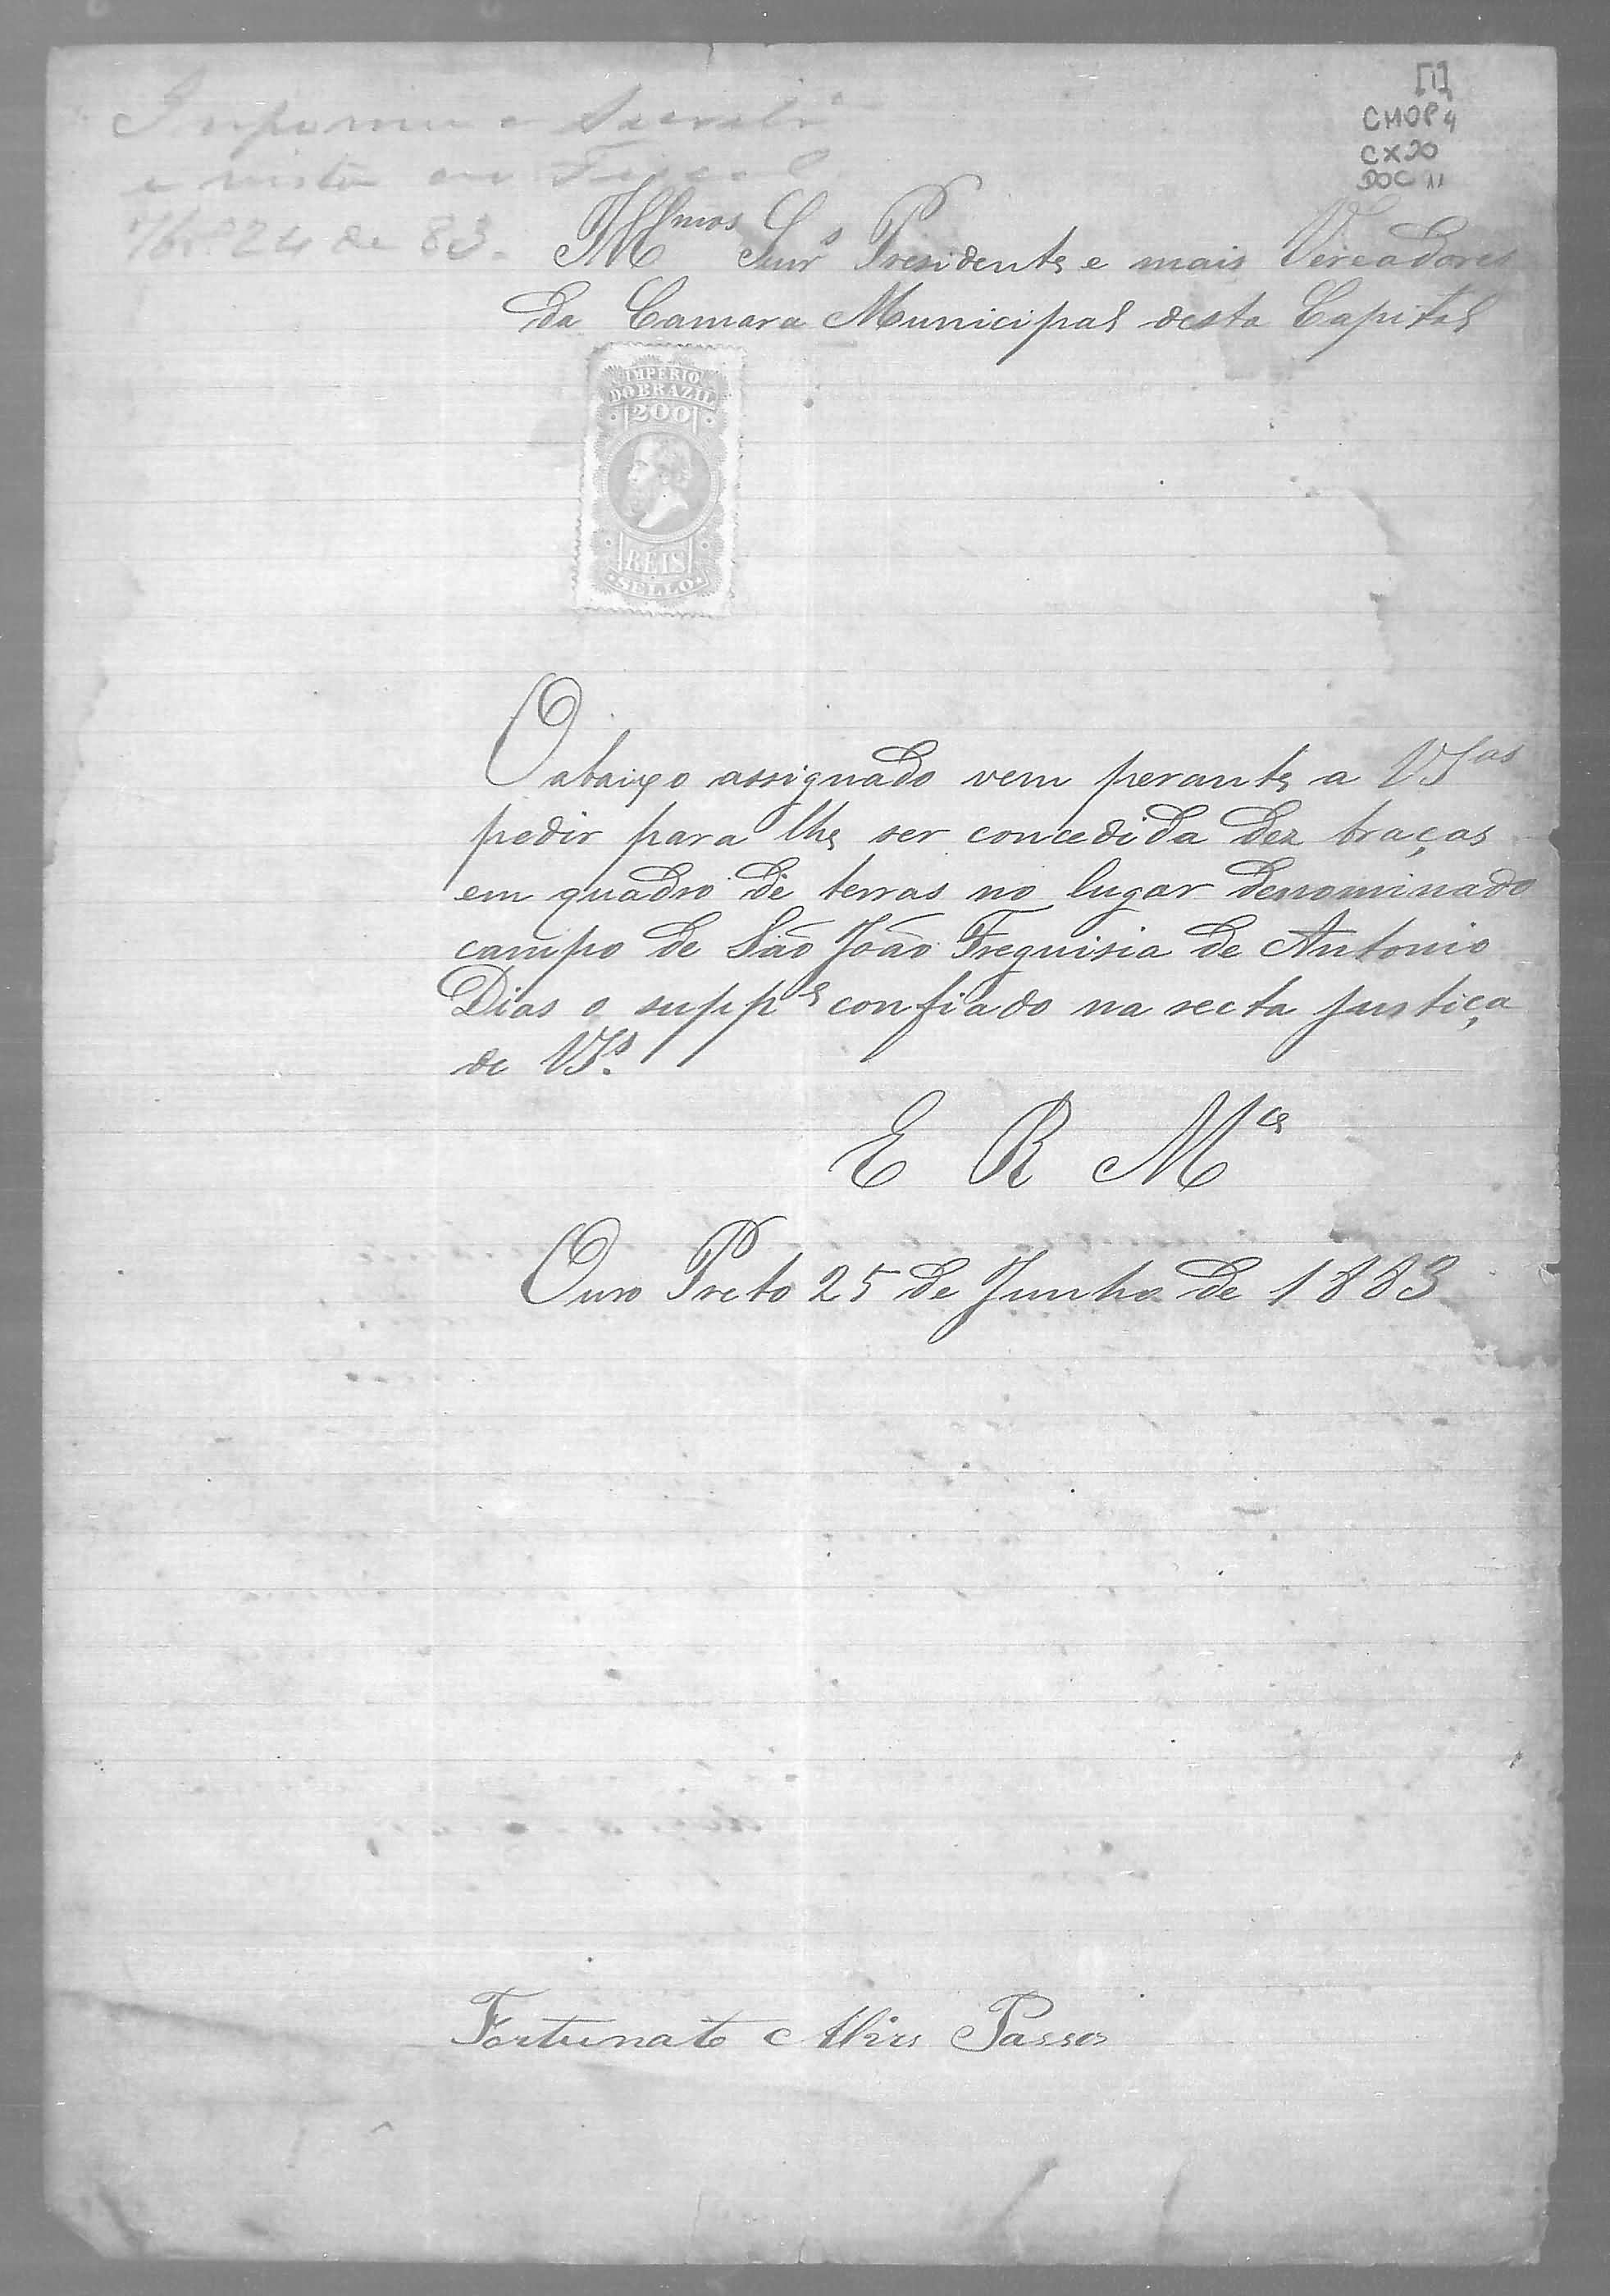 [1]
CMOP 4
CX 20
DOC 11
Informe o Secret.º
e vista ao Fiscal
24 de 83.
Illmos Snrs Presidente e mais Vereadores
da Camara Municipal desta Capital
IMPERIO
DO BRAZIL
200
REIS
SELLO
O abaixo assignado vem perante a VSas
pedir para lhe ser concedida dez braças
em quadro de terras no lugar denominado
campo de São João Freguisia de Antonio
Dias o suppe confiado na recta justiça
de VSs.
E R Mce
Ouro Preto 25 de Junho de 1883
Fortunato Alves Passos